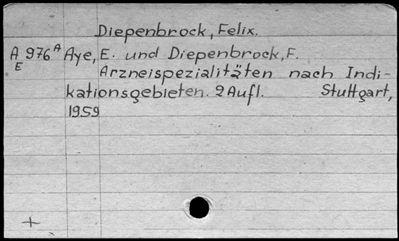 Diepenbrock, Felix.
A 976 A Aye, E. und Diepenbrock, F.
E Arzneispezialitäten nach Indi-
kationsgebieten. 2 Aufl. Stuttgart,
1959
+